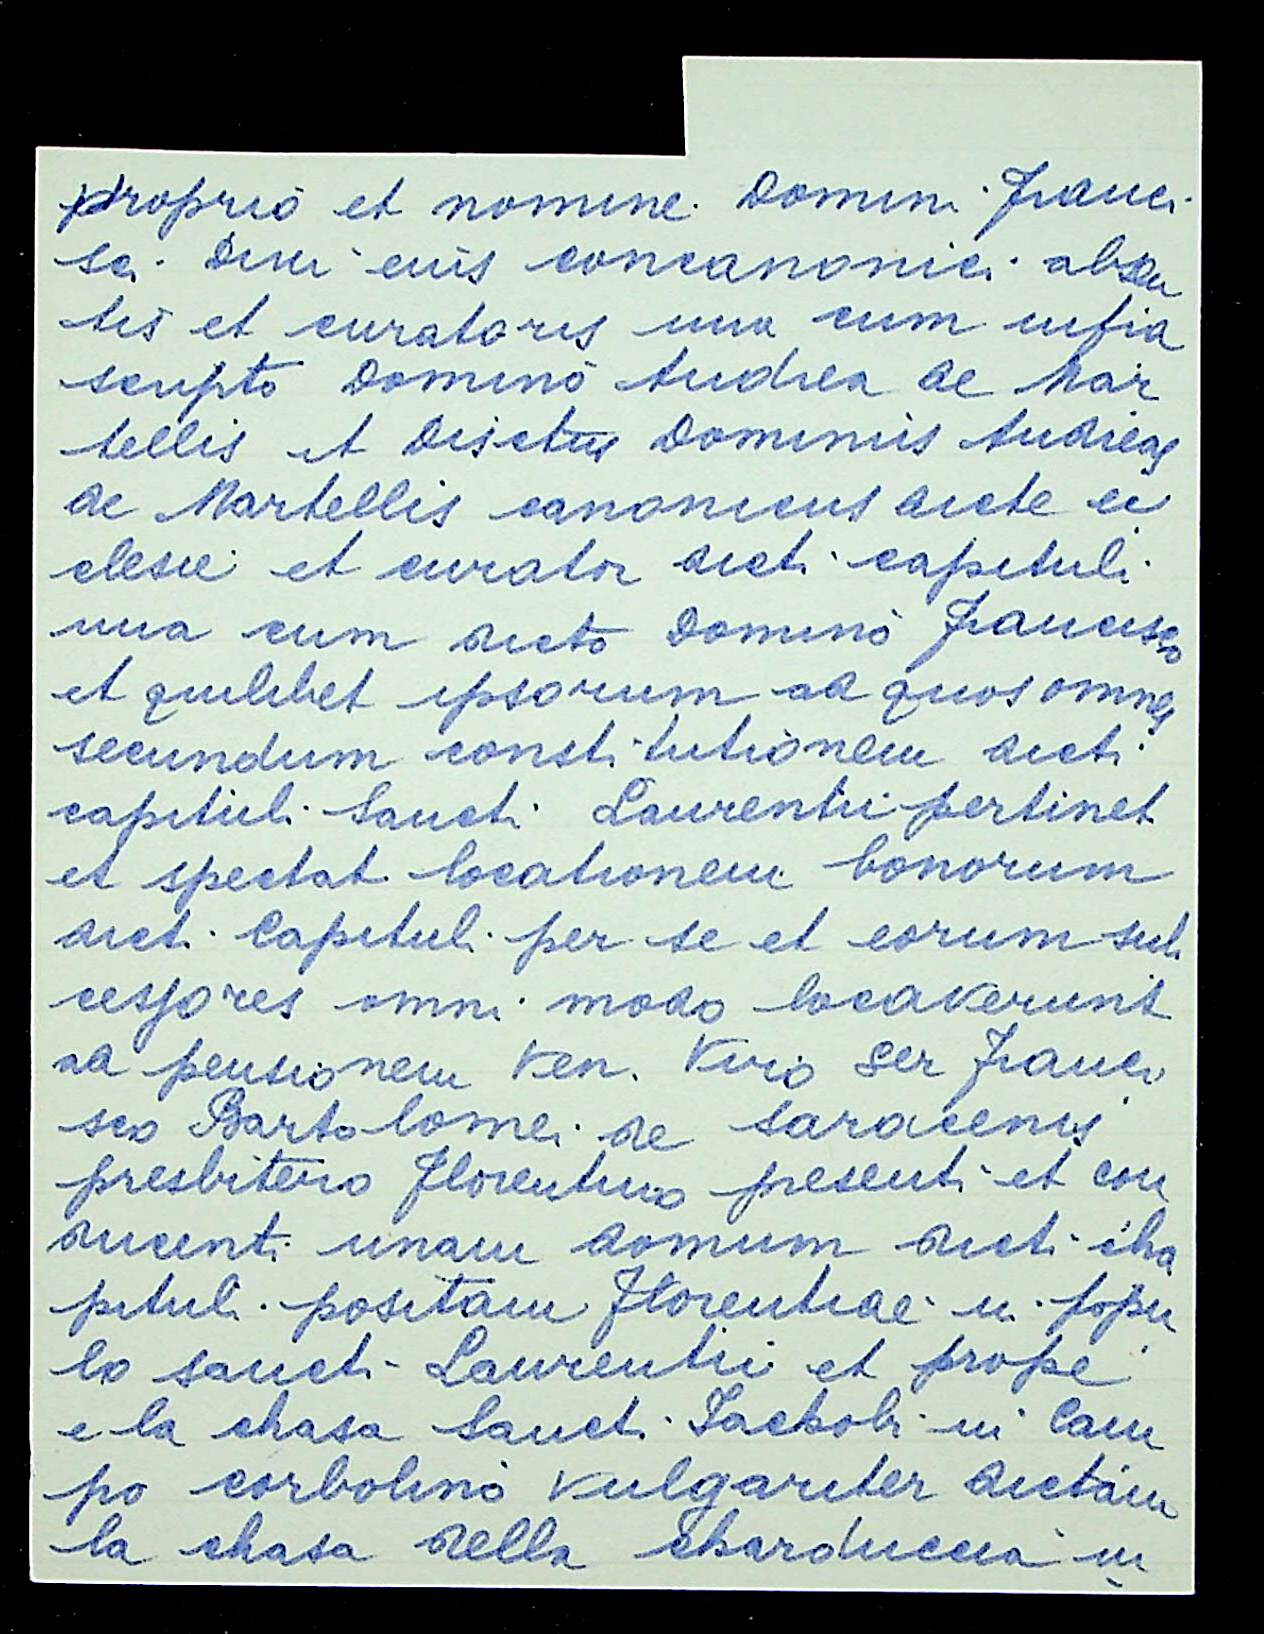 proprio et nomine Domini Franci
sci Dini eius concanonici absen
tis et curatoris una cum infra
scripto Domino Andrea de Mar
tellis et Dictus Dominus Andreas
de Martellis canonicus dicte ec
clesie et curator dicti capituli
una cum dicto Domino Francisco
et quilibet ipsorum ad quos omnes
secundum constitutionem dicti
capituli Sancti Laurentii pertinet
et spectat locationem bonorum
dicti Capituli per se et eorum suc
cessores omni modo locaverunt
ad pensionem Ven. Viro Ser Franci
sco Bartolomei de Saracenis
presbitero Florentino presenti et con
ducenti unam domum dicti cha
pituli positam Florentiae in popu
lo sancti Laurentii et prope
e la chasa Sancti Jachobi in Cam
po corbolino vulgariter dictam
la chasa della charduccia in